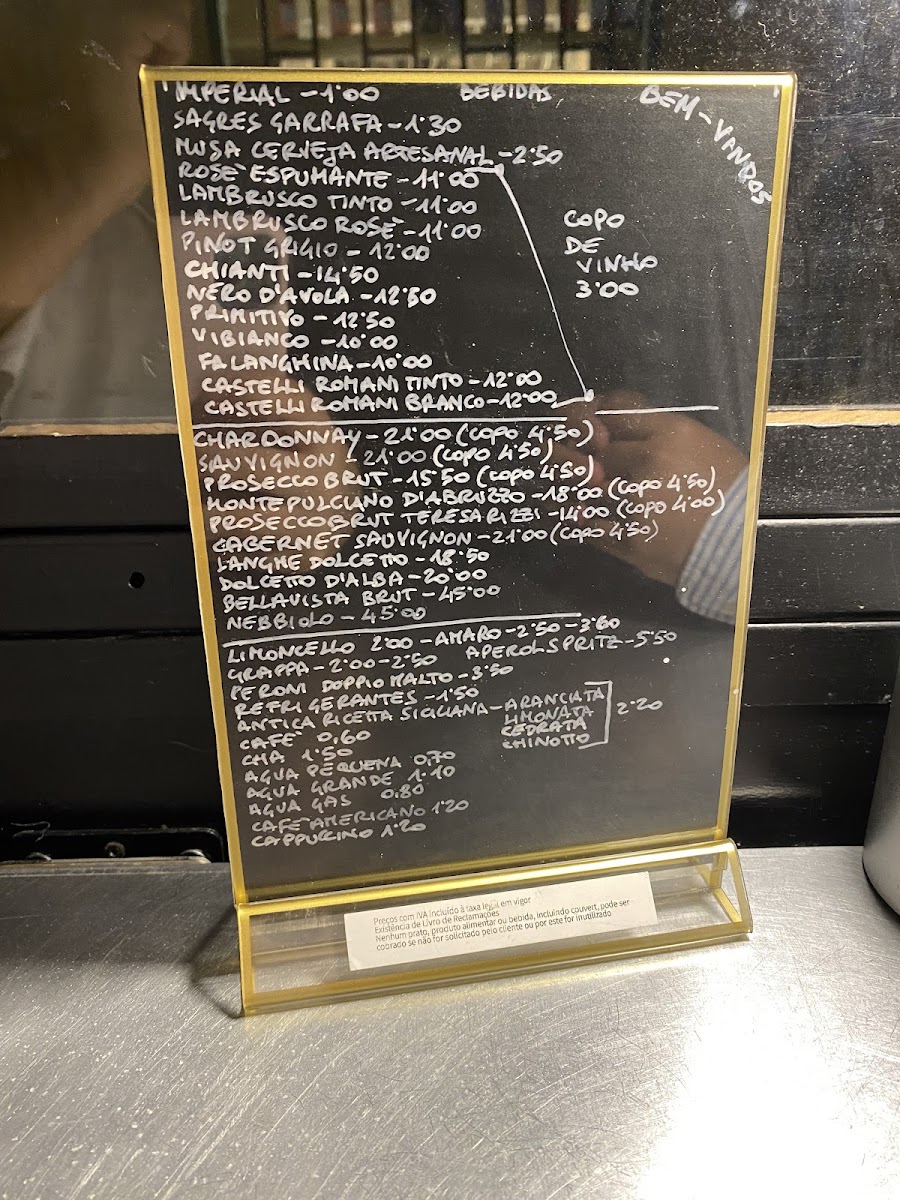 IMPERIAL - 1'00 BEBIDAS BEM-VINDOS
SAGRES GARRAFA - 1'30
MUSA CERVEJA ARTESANAL - 2'50
ROSÉ ESPUMANTE - 11'00
LAMBRUSCO TINTO - 11'00
LAMBRUSCO ROSÉ - 11'00
PINOT GRIGIO - 12'00
CHIANTI - 14'50
NERO D'AVOLA - 12'50
PRIMITIVO - 12'50
VIBIANCO - 10'00
FALANGHINA - 10'00
CASTELLI ROMANI TINTO - 12'00
CASTELLI ROMANI BRANCO - 12'00
COPO
DE
VINHO
3'00
CHARDONNAY - 21'00 (COPO 4'50)
SAUVIGNON - 21'00 (COPO 4'50)
PROSECCO BRUT - 15'50 (COPO 4'50)
MONTEPULCIANO D'ABRUZZO - 18'00 (COPO 4'50)
PROSECCO BRUT TERESA RIZZI - 14'00 (COPO 4'00)
CABERNET SAUVIGNON - 21'00 (COPO 4'50)
LANGHE DOLCETTO - 18'50
DOLCETTO D'ALBA - 20'00
BELLAVISTA BRUT - 45'00
NEBBIOLO - 45'00
LIMONCELLO 2'00 - AMARO - 2'50 - 3'60
GRAPPA - 2'00 - 2'50 APEROL SPRITZ - 5'50
PERONI DOPPIO MALTO - 3'50
REFRIGERANTES - 1'50
ANTICA RICETTA SICILIANA - ARANCIATA
LIMONATA
CEDRATA
CHINOTTO
2'20
CAFÈ 0,60
CHA 1'50
AGUA PEQUENA 0,70
AGUA GRANDE 1'10
AGUA GAS 0,80
CAFÈ AMERICANO 1'20
CAPPUCCINO 1'20
Preços com IVA incluído à taxa legal em vigor
Existência de Livro de Reclamações
Nenhum prato, produto alimentar ou bebida, incluindo couvert, pode ser
cobrado se não for solicitado pelo cliente ou por este for inutilizado